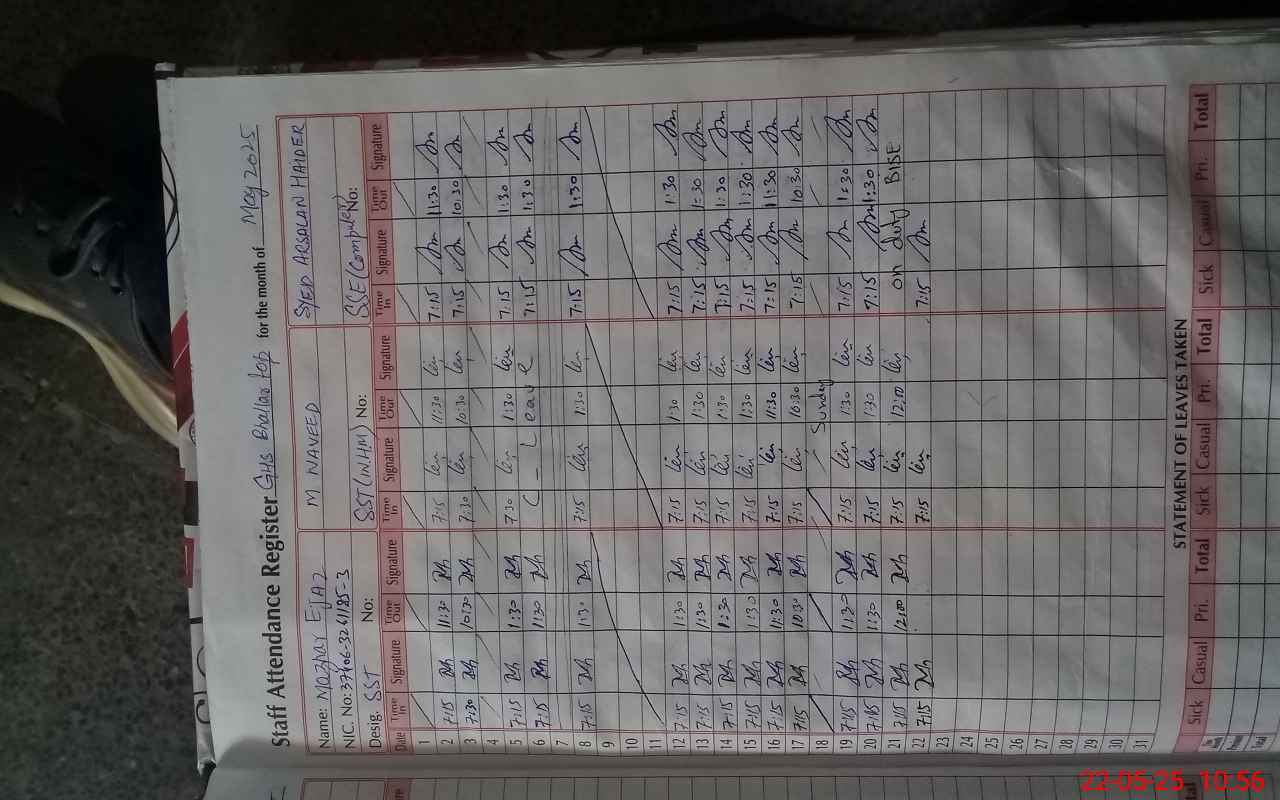 Staff Attendance Register GHS Bhallar top for the month of May 2025
Name: Mazhar Ejaz M NAVEED SYED ARSALAN HAIDER
NIC. No: 37106-3261185-3
Desig. SST No: SST (IN.HM) No: SSE (Computer) No:
Date Time In Signature Time Out Signature Time In Signature Time Out Signature Time In Signature Time Out Signature
1
2 7:15 11:30 7:15 11:30 7:15 11:30
3 7:30 10:30 7:30 10:30 7:15 10:30
4
5 7:15 1:30 7:30 1:30 7:15 1:30
6 7:15 1:30 C - Leave 7:15 1:30
7
8 7:15 1:30 7:15 1:30 7:15 1:30
9
10
11
12 7:15 1:30 7:15 1:30 7:15 1:30
13 7:15 1:30 7:15 1:30 7:15 1:30
14 7:15 1:30 7:15 1:30 7:15 1:30
15 7:15 1:30 7:15 1:30 7:15 11:30
16 7:15 11:30 7:15 11:30 7:15 11:30
17 7:15 10:30 7:15 10:30 7:15 10:30
18 Sunday
19 7:15 1:30 7:15 1:30 7:15 1:30
20 7:15 1:30 7:15 1:30 7:15 1:30
21 7:15 12:00 7:15 12:00 on duty BISE
22 7:15 7:15 7:15
23
24
25
26
27
28
29
30
31
STATEMENT OF LEAVES TAKEN
Sick Casual Pri. Total Sick Casual Pri. Total Sick Casual Pri. Total
Total
22-05-25 10:56